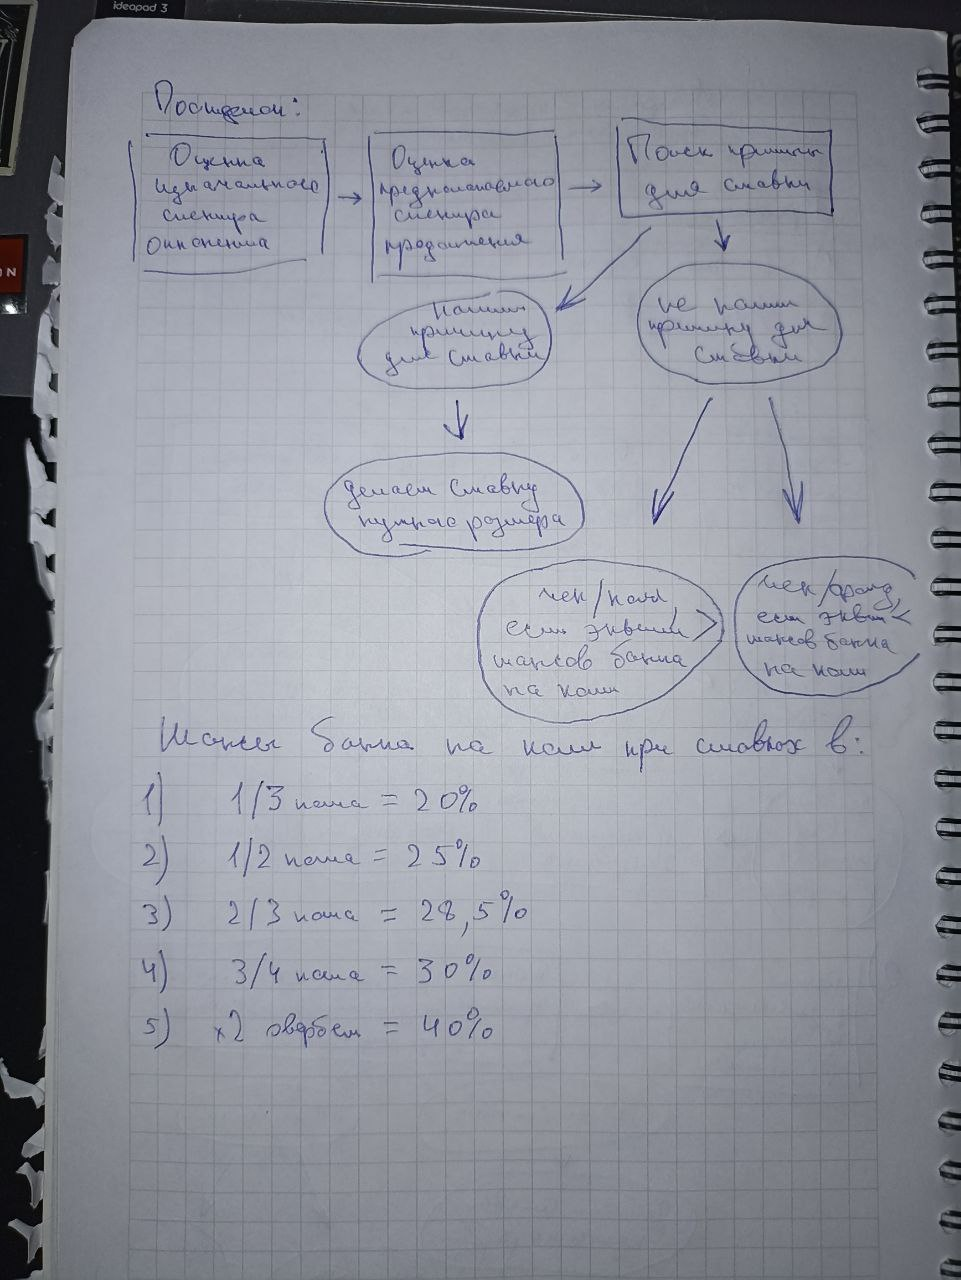 ideapad 3
Постфлоп:
Оценка
изначального
спектра
оппонента
Оценка
предполагаемого
спектра
продолжения
Поиск причины
для ставки
Нашли
причину
для ставки
не нашли
причину для
ставки
делаем ставку
нужного размера
чек/колл,
если эквити >
шансов банка
на колл
чек/фолд,
если эквити <
шансов банка
на колл
Шансы банка на колл при ставках в:
1) 1/3 пота = 20%
2) 1/2 пота = 25%
3) 2/3 пота = 28,5%
4) 3/4 пота = 30%
5) x2 овербет = 40%